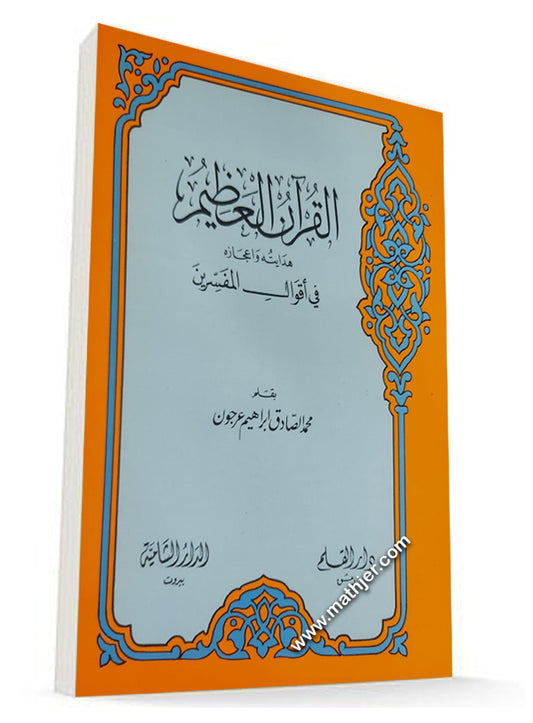 القُرآنُ العَظيمُ
هدايته وإعجازه
في أقوالِ المفسّرين
بقلم
محمد الصّادق ابراهيم عرجون
دار القلم
الدار الشاميّة
بيروت
www.mathjer.com